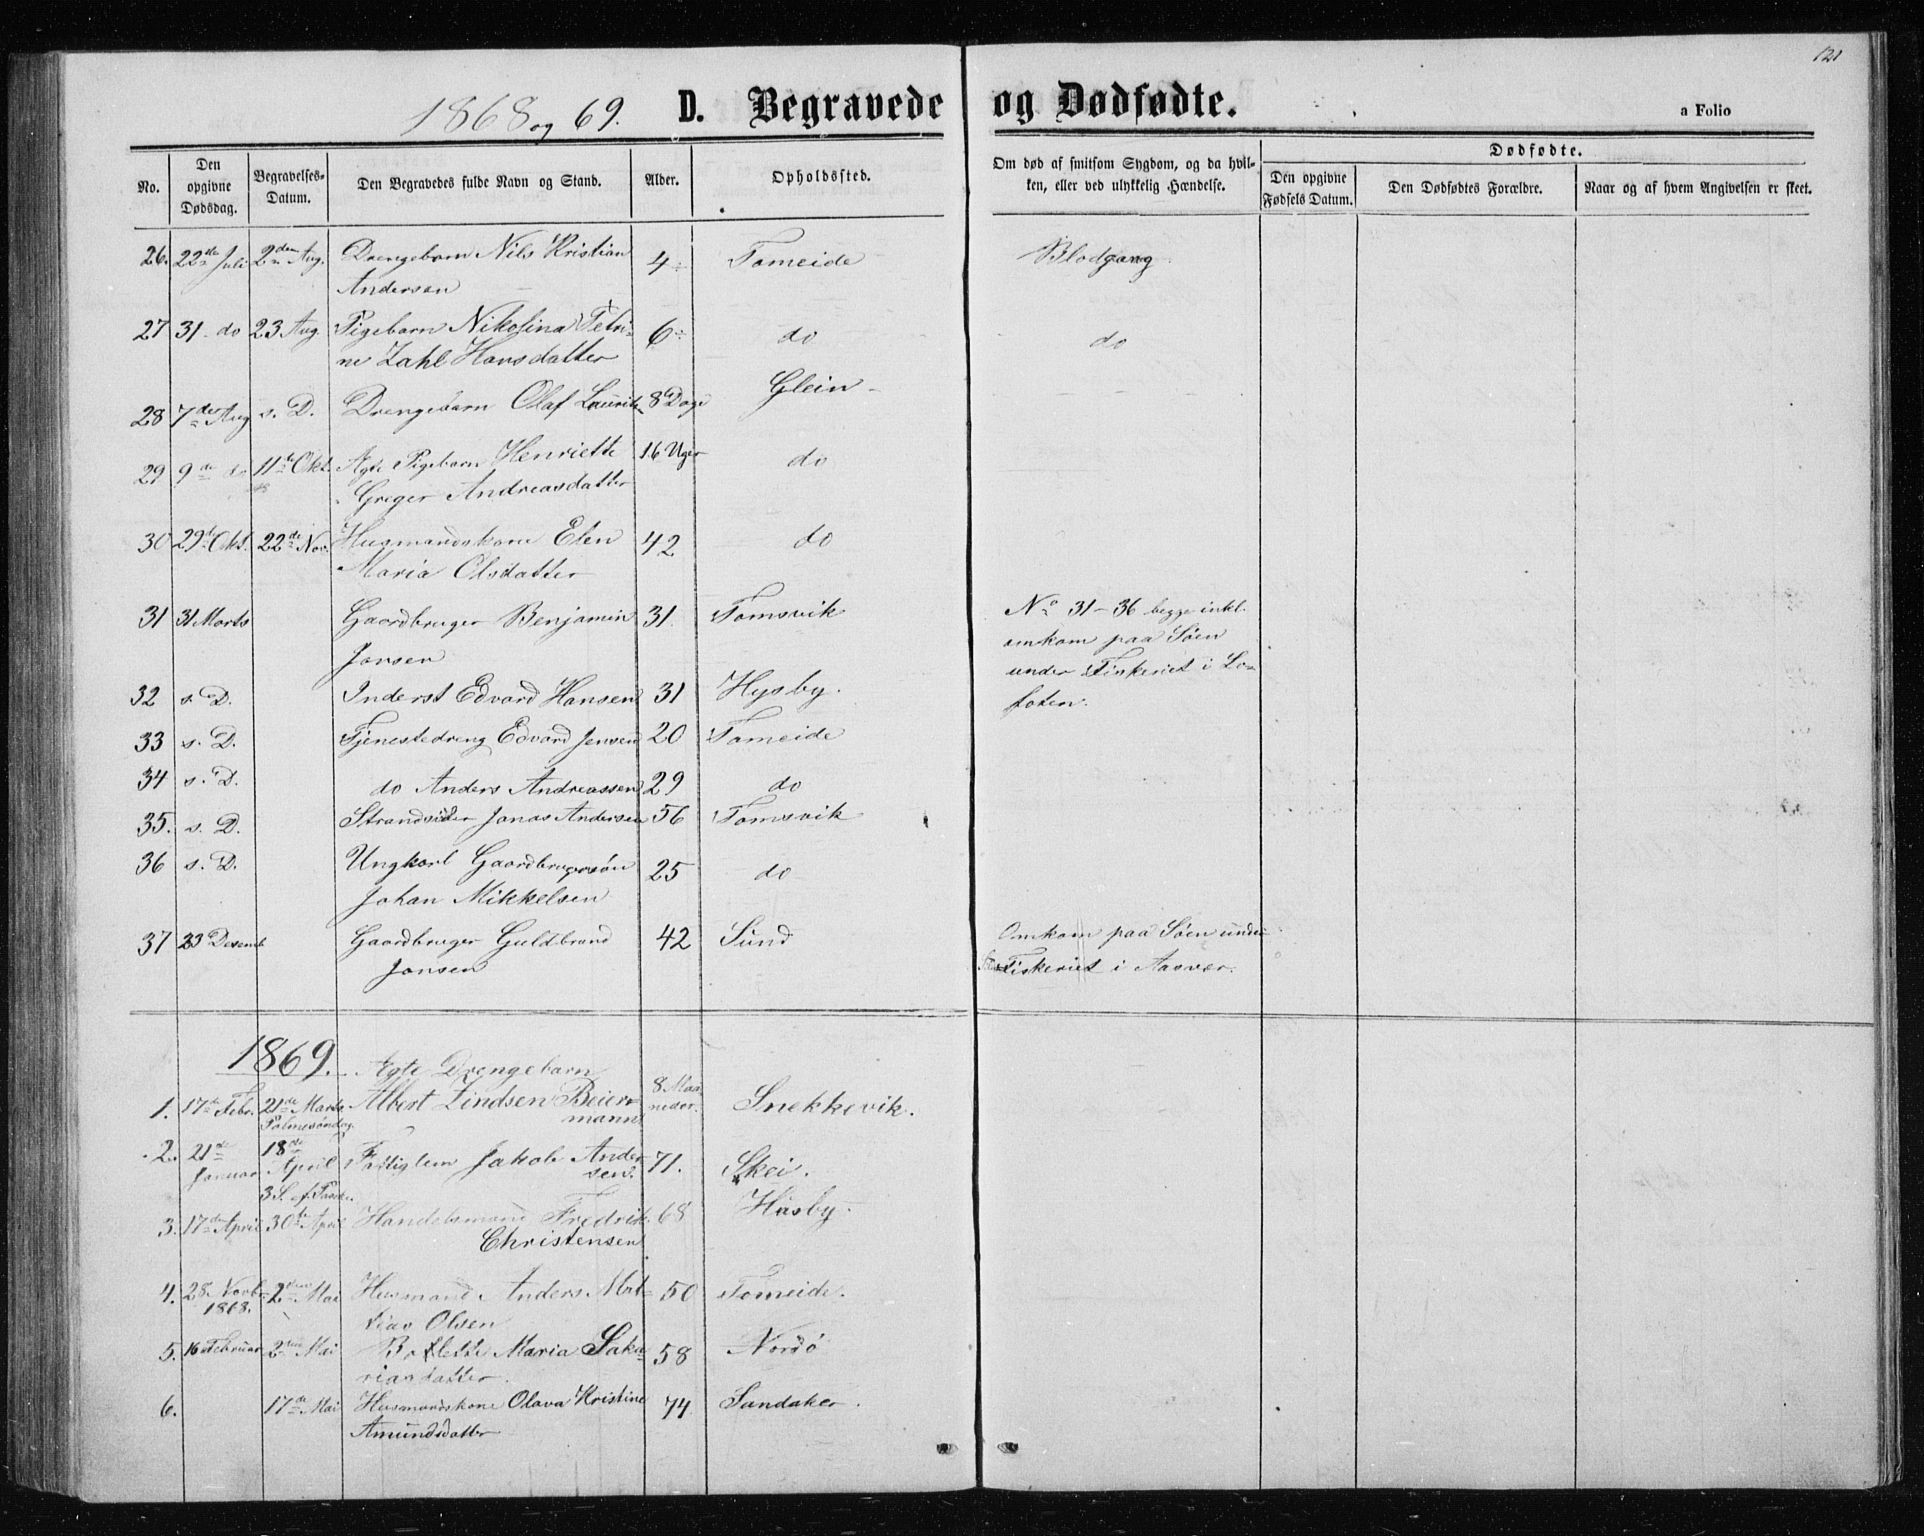 121
1868 og 69. D. Begravede og Dødfødte.
a Folio
No.
Den opgivne Dødsdag.
Begravelses-Datum.
Den Begravedes fulde Navn og Stand.
Alder.
Opholdssted.
Om død af smitsom Sygdom, og da hvil-
ken, eller ved ulykkelig Hændelse.
Dødfødte.
Den opgivne Fødsels Datum.
Den Dødfødtes Forældre.
Naar og af hvem Angivelsen er skeet.
26. 22de Juli 2den Aug. Drengebarn Nils Kristian 4 Tomeide Blodgang
Andersen
27 31 do 23 Aug. Pigebarn Nikolina Petri- 6 do do
ne Zahl Hansdatter
28 7de Aug s. D. Drengebarn Olaf Lauritz 8 Dage Glein
29 9de do 11te Okt. Ægte Pigebarn Henriette 16 Uger do
Greger Andreasdatter
30 29de Okt. 22de Nov. Husmandskone Elen 42 do
Maria Olsdatter
31 31 Marts Gaardbruger Benjamin 31. Tomsvik No 31-36 begge inkl.
Jonsen omkom paa Søen
under Fiskeriet i Lo-
32 s. D. Inderst Edvard Hansen 31 Hysby. foten.
33 s. D. Tjenestedreng Edvard Jensen 20 Tomeide
34 s. D. do Anders Andreassen 29 do
35. s. D. Strandsider Jonas Andersen 56 Tomsvik
36 s. D. Ungkarl Gaardbrugersøn 25 do
Johan Mikkelsen
37 23 Desemb Gaardbruger Guldbrand 42 Sund Omkom paa Søen under
Jonsen Fiskeriet i Aasvær.
1869. Ægte Drengebarn
1. 17de Febr. 21de Marts Albert Zindsen Beier- 8 Maa- Snekkevik.
Palmesøndag mann neder.
2. 21de 18de
Januar April Fattiglem Jakob Ander- 71. Skei.
3 S. ef. Paaske sen.
3. 17de April 30te April Handelsmand Fredrik 68 Husby.
Christensen
4. 28 Novbr 2den Mai Husmand Anders Mat- 50 Tomeide.
1868. tias Olsen
5. 16 Februar 2den Mai Bollette Maria Saka- 58 Nordø
riasdatter.
6. 17de Mai Husmandskone Olava Kristine 74 Sandaker.
Amundsdatter